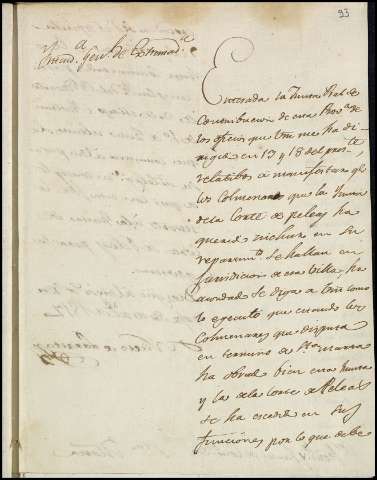 93
Intend.ª Gen.l de Extremad.ª
Enterada la Junta Pral de
Contribucion de esta Prov.ª de
los oficios que Vm me ha di-
rigido en 13 y 18 del pres.te
relatibos á manifestar q.e
los Colmenares que la Junta
de la Corte de Peleas ha
querido incluir en su
repartim.to se hallan en
jurisdicion de esa Villa ha
acordado se diga á Vm como
lo ejecuto que estando los
Colmenares que disputa
en termino de S.ta Marta
ha obrado bien esa Junta
y la de la Corte de Peleas
se ha escedido en sus
funciones por lo que debe